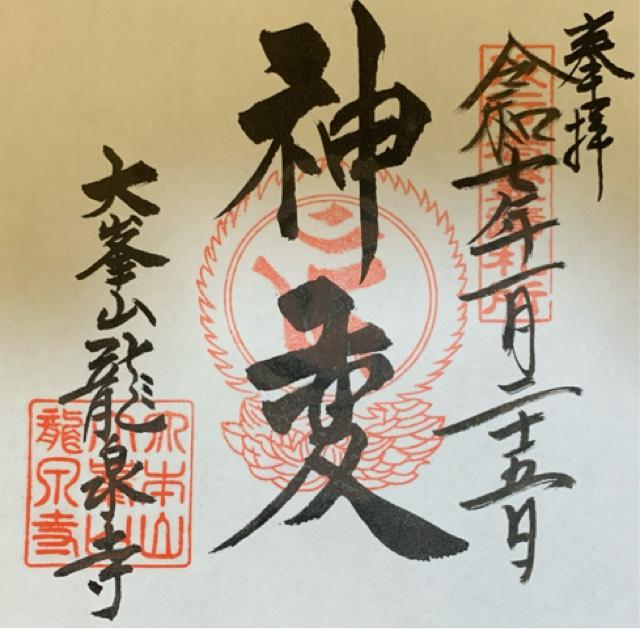 奉拝
令和七年一月二十五日
神変
大峯山龍泉寺
大本山
龍泉寺